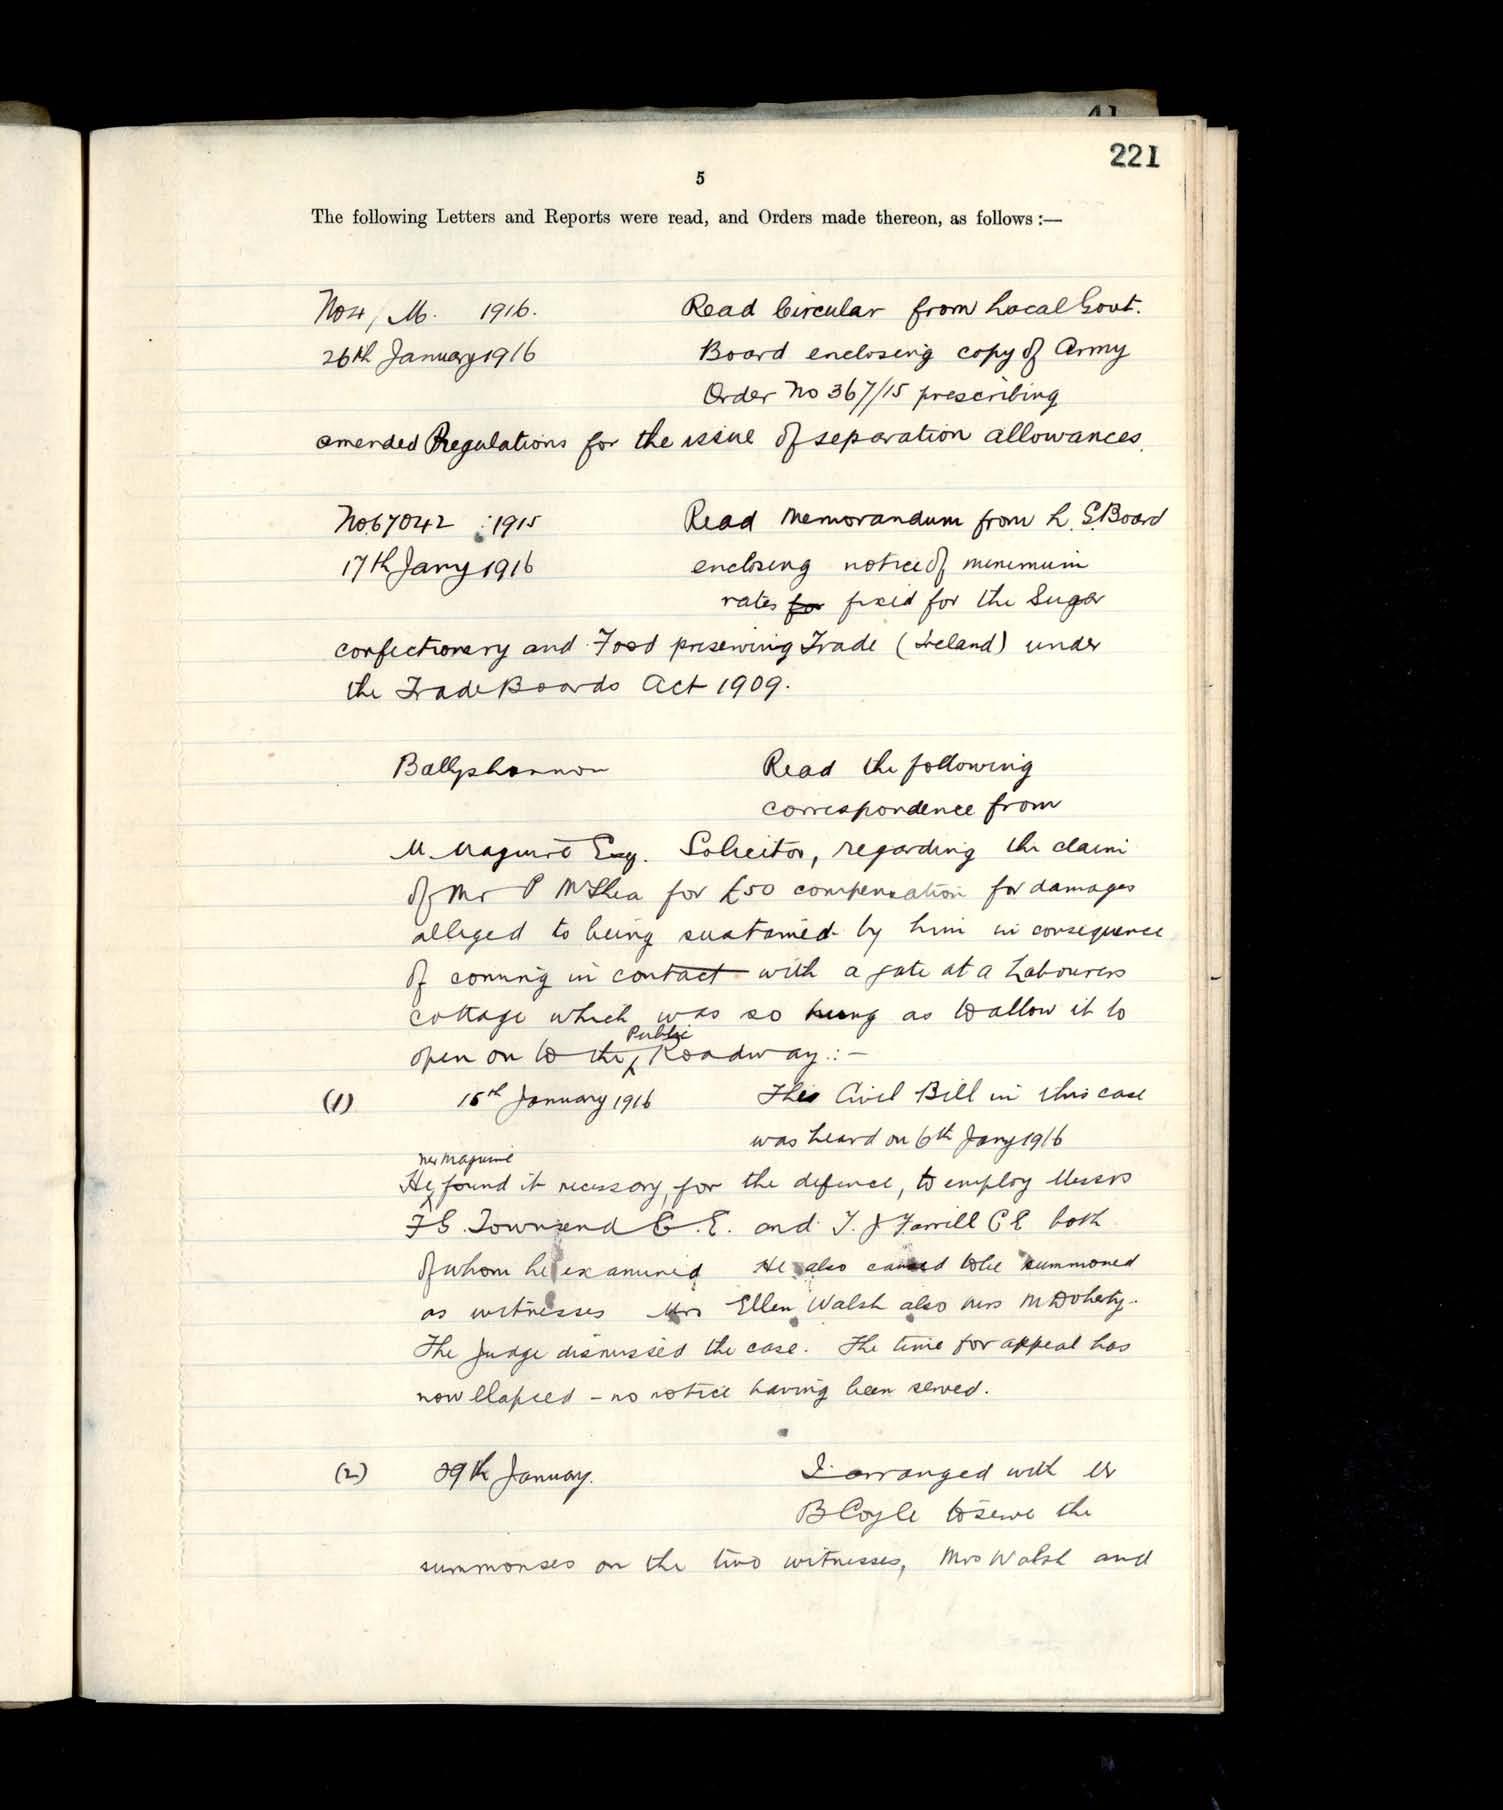 221
5
The following Letters and Reports were read, and Orders made thereon, as follows :—
No 4, M. 1916. Read Circular from Local Govt.
26th January 1916 Board enclosing copy of Army
Order No 367/15 prescribing
amended Regulations for the issue of separation allowances.
No. 67042 : 1915 Read Memorandum from L. G. Board
17th Jany 1916 enclosing notice of minimum
rates for fixed for the Sugar
confectionery and Food preserving Trade (Ireland) under
the Trade Boards Act 1909.
Ballyshannon Read the following
correspondence from
M. Maguire Esq. Solicitor, regarding the claim
of Mr P McShea for £50 compensation for damages
alleged to being sustained by him in consequence
of coming in contact with a gate at a Labourers
cottage which was so hung as to allow it to
open on to the Public Roadway :—
(1) 15th January 1916 This Civil Bill in this case
was heard on 6th Jany 1916
Mr Maguire
He found it necessary, for the defence, to employ Messrs
F G. Townsend C. E. and T. J Farrill C E both
of whom he examined He also caused to be summoned
as witnesses Mrs Ellen Walsh also Mrs McDoherty.
The Judge dismissed the case. The time for appeal has
now elapsed – no notice having been served.
(2) 29th January. I arranged with Mr
B Coyle to serve the
summonses on the two witnesses, Mrs Walsh and